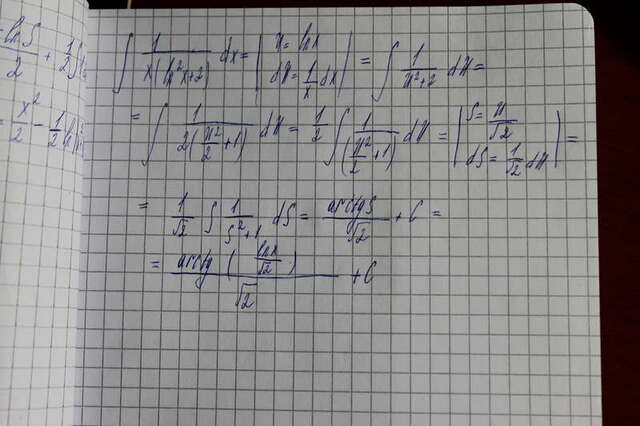 ∫ 1/(x(ln²x+2)) dx = | u = lnx, du = 1/x dx | = ∫ 1/(u²+2) du =
= ∫ 1/(2(u²/2+1)) du = 1/2 ∫ 1/(u²/2+1) du = | S = u/√2, dS = 1/√2 du | =
= 1/√2 ∫ 1/(S²+1) dS = arctg S/√2 + C =
= arctg (lnx/√2)/√2 + C